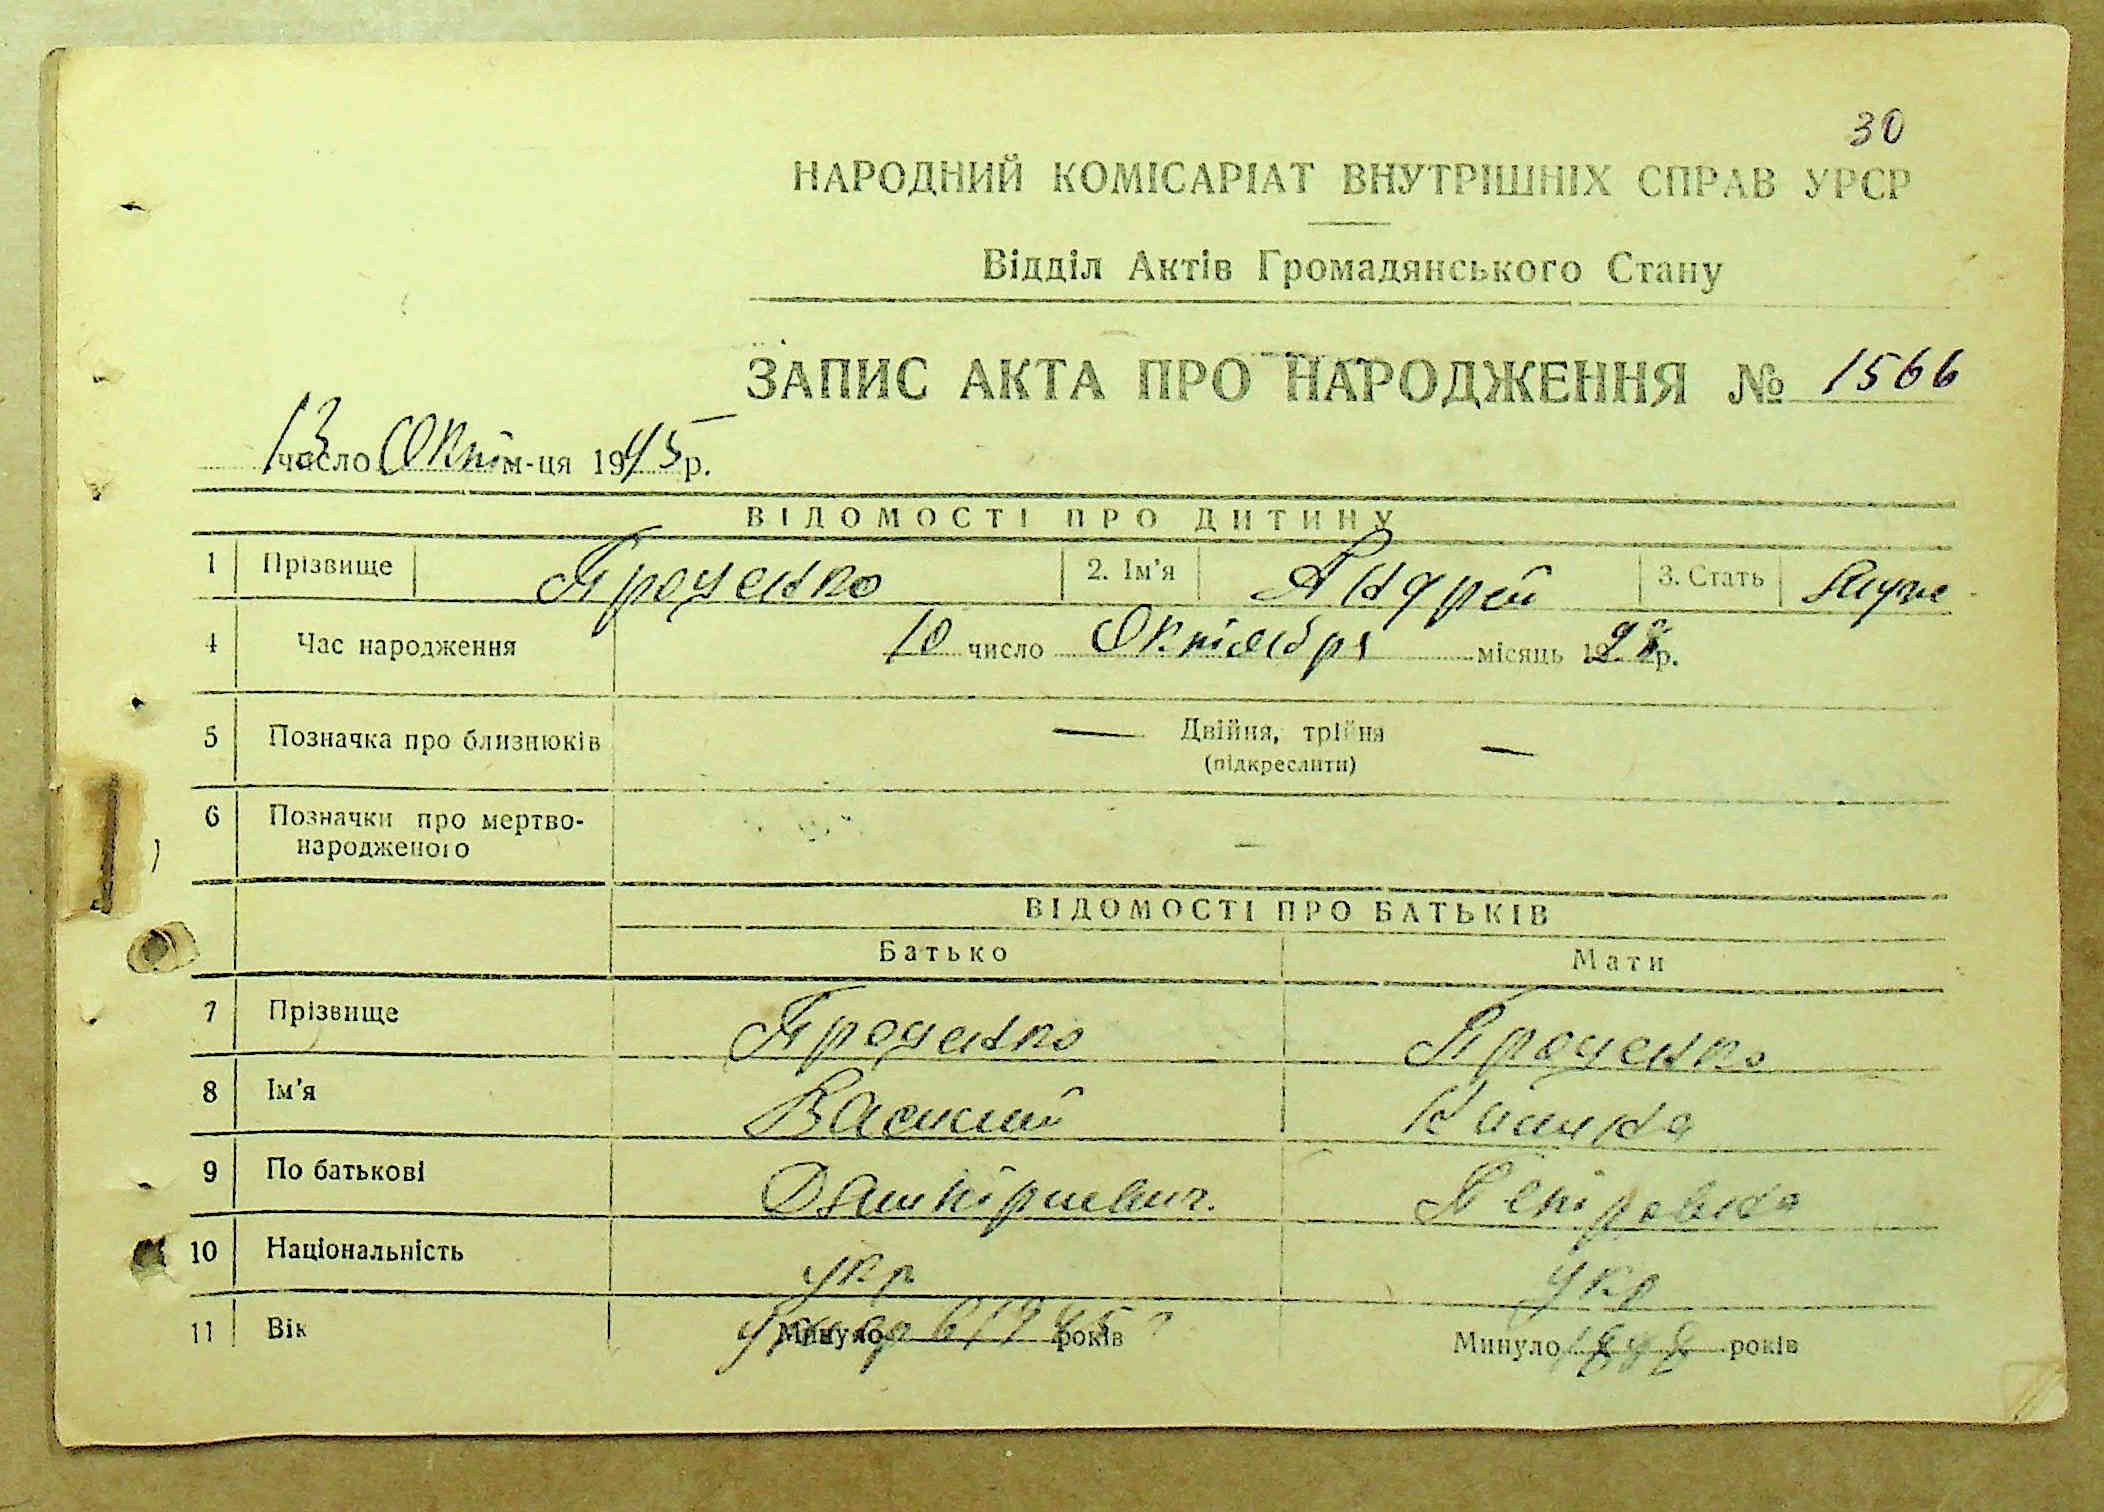 30
НАРОДНИЙ КОМІСАРІАТ ВНУТРІШНІХ СПРАВ УРСР
Відділ Актів Громадянського Стану
ЗАПИС АКТА ПРО НАРОДЖЕННЯ № 1566
13 число Окт м-ця 1945 р.
ВІДОМОСТІ ПРО ДИТИНУ
1 Прізвище Проценко 2. Ім'я Андрей 3. Стать муж
4 Час народження 10 число Октября місяць 1928 р.
5 Позначка про близнюків — Двійня, трійня —
(підкреслити)
6 Позначки про мертво-
народженого —
ВІДОМОСТІ ПРО БАТЬКІВ
Батько Мати
7 Прізвище Проценко Проценко
8 Ім'я Василий
9 По батькові Дмитриевич. Петровна
10 Національність укр укр
11 Вік умер в 1945 г Минуло років Минуло 1898 років